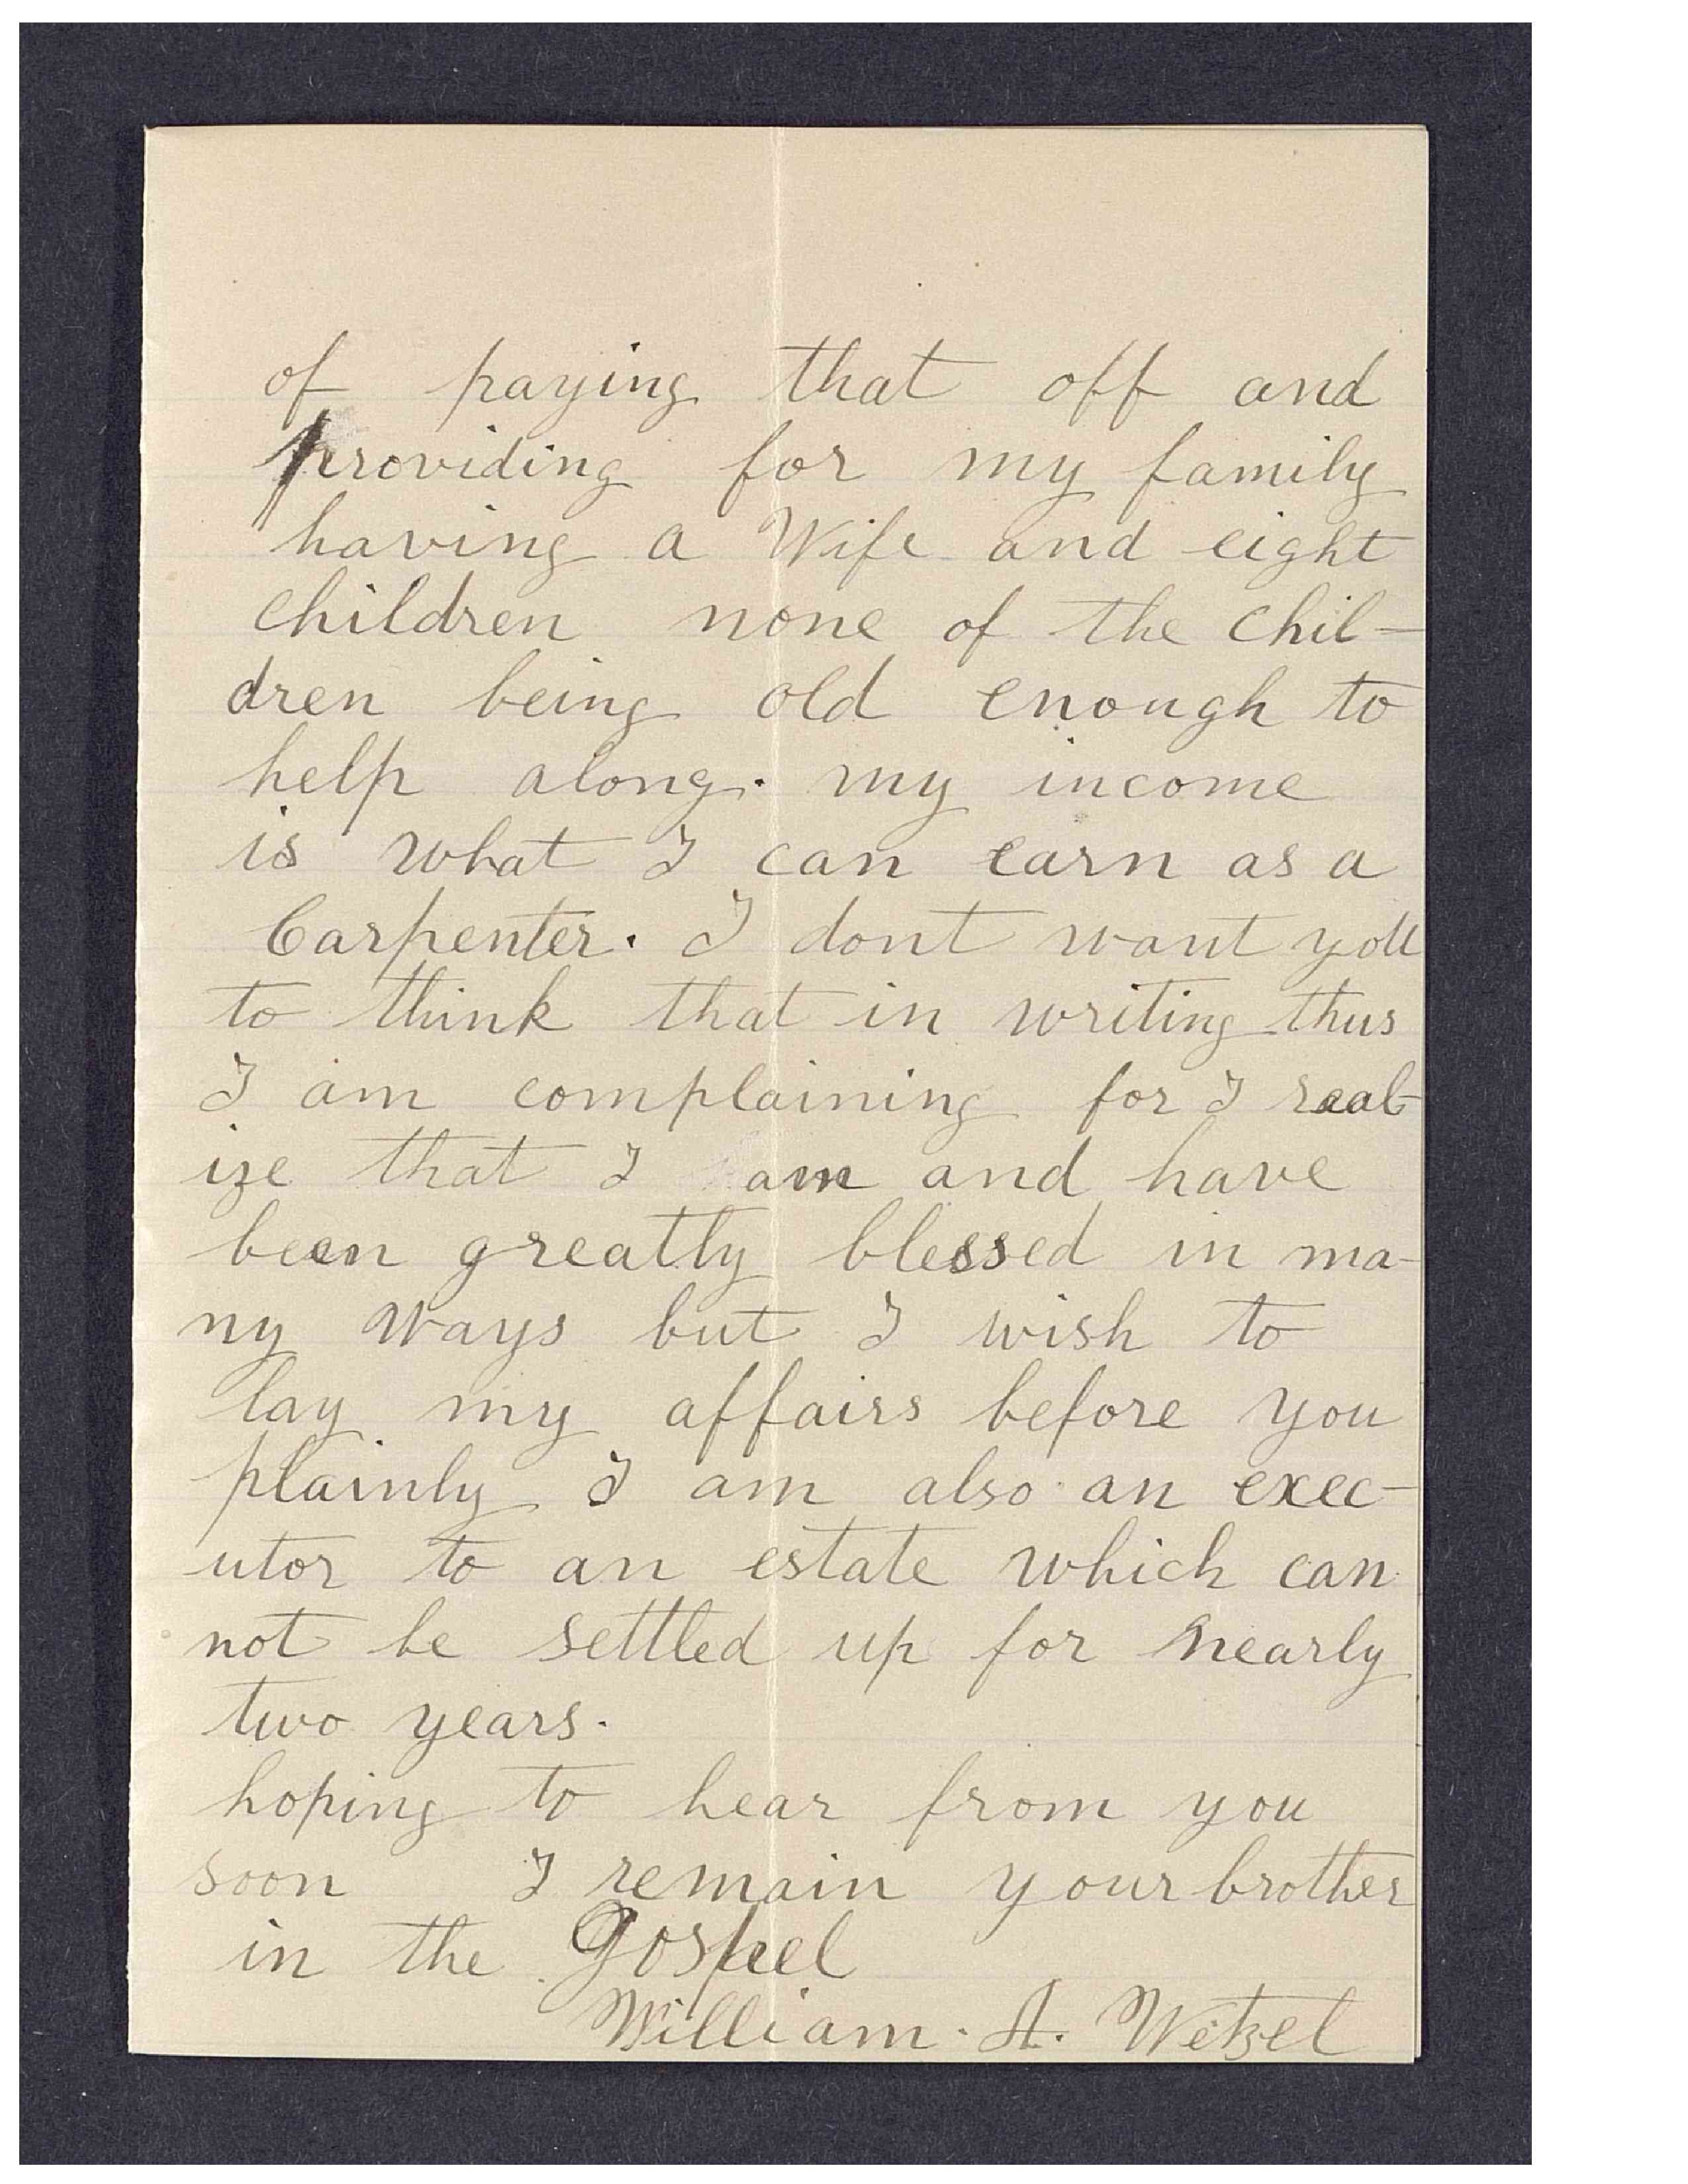 of paying that off and
providing for my family
having a Wife and eight
children none of the chil-
dren being old enough to
help along. my income
is what I can earn as a
Carpenter. I dont want you
to think that in writing thus
I am complaining for I real-
ize that I am and have
been greatly blessed in ma-
ny ways but I wish to
lay my affairs before you
plainly I am also an exec-
utor to an estate which can
not be settled up for nearly
two years.
hoping to hear from you
soon I remain your brother
in the Gospel
William. A. Wetzel